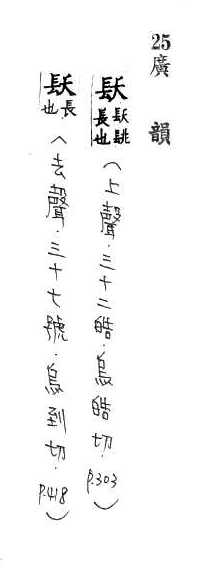 25 廣韻
镺 镺 長也(上聲.三十二皓.烏皓切.p.303)
镺 長也(去聲.三十七號.烏到切.p.418)